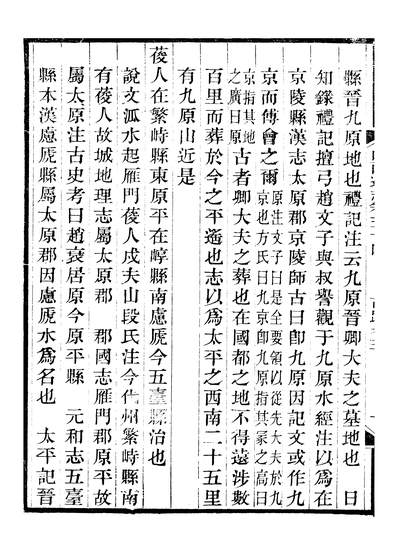 縣晉九原地也禮記注云九原晉卿大夫之墓地也　日
知錄禮記檀弓趙文子與叔譽觀于九原水經注以爲在
京陵縣漢志太原郡京陵師古曰卽九原因記文或作九
京而傅會之爾原注文子曰是全要領以從先大夫於九京也方氏曰九京卽九原指其冢之高曰
京指其地之廣曰原古者卿大夫之葬也在國都之地不得遠涉數
百里而葬於今之平遙也志以爲太平之西南二十五里
有九原山近是
葰人在繁峙縣東原平在崞縣南慮虒今五臺縣治也
說文泒水起雁門葰人戍夫山段氏注今代州繁峙縣南
有葰人故城地理志屬太原郡　郡國志雁門郡原平故
屬太原注古史考曰趙衰居原今原平縣　元和志五臺
縣本漢慮虒縣屬太原郡因慮虒水爲名也　太平記晉